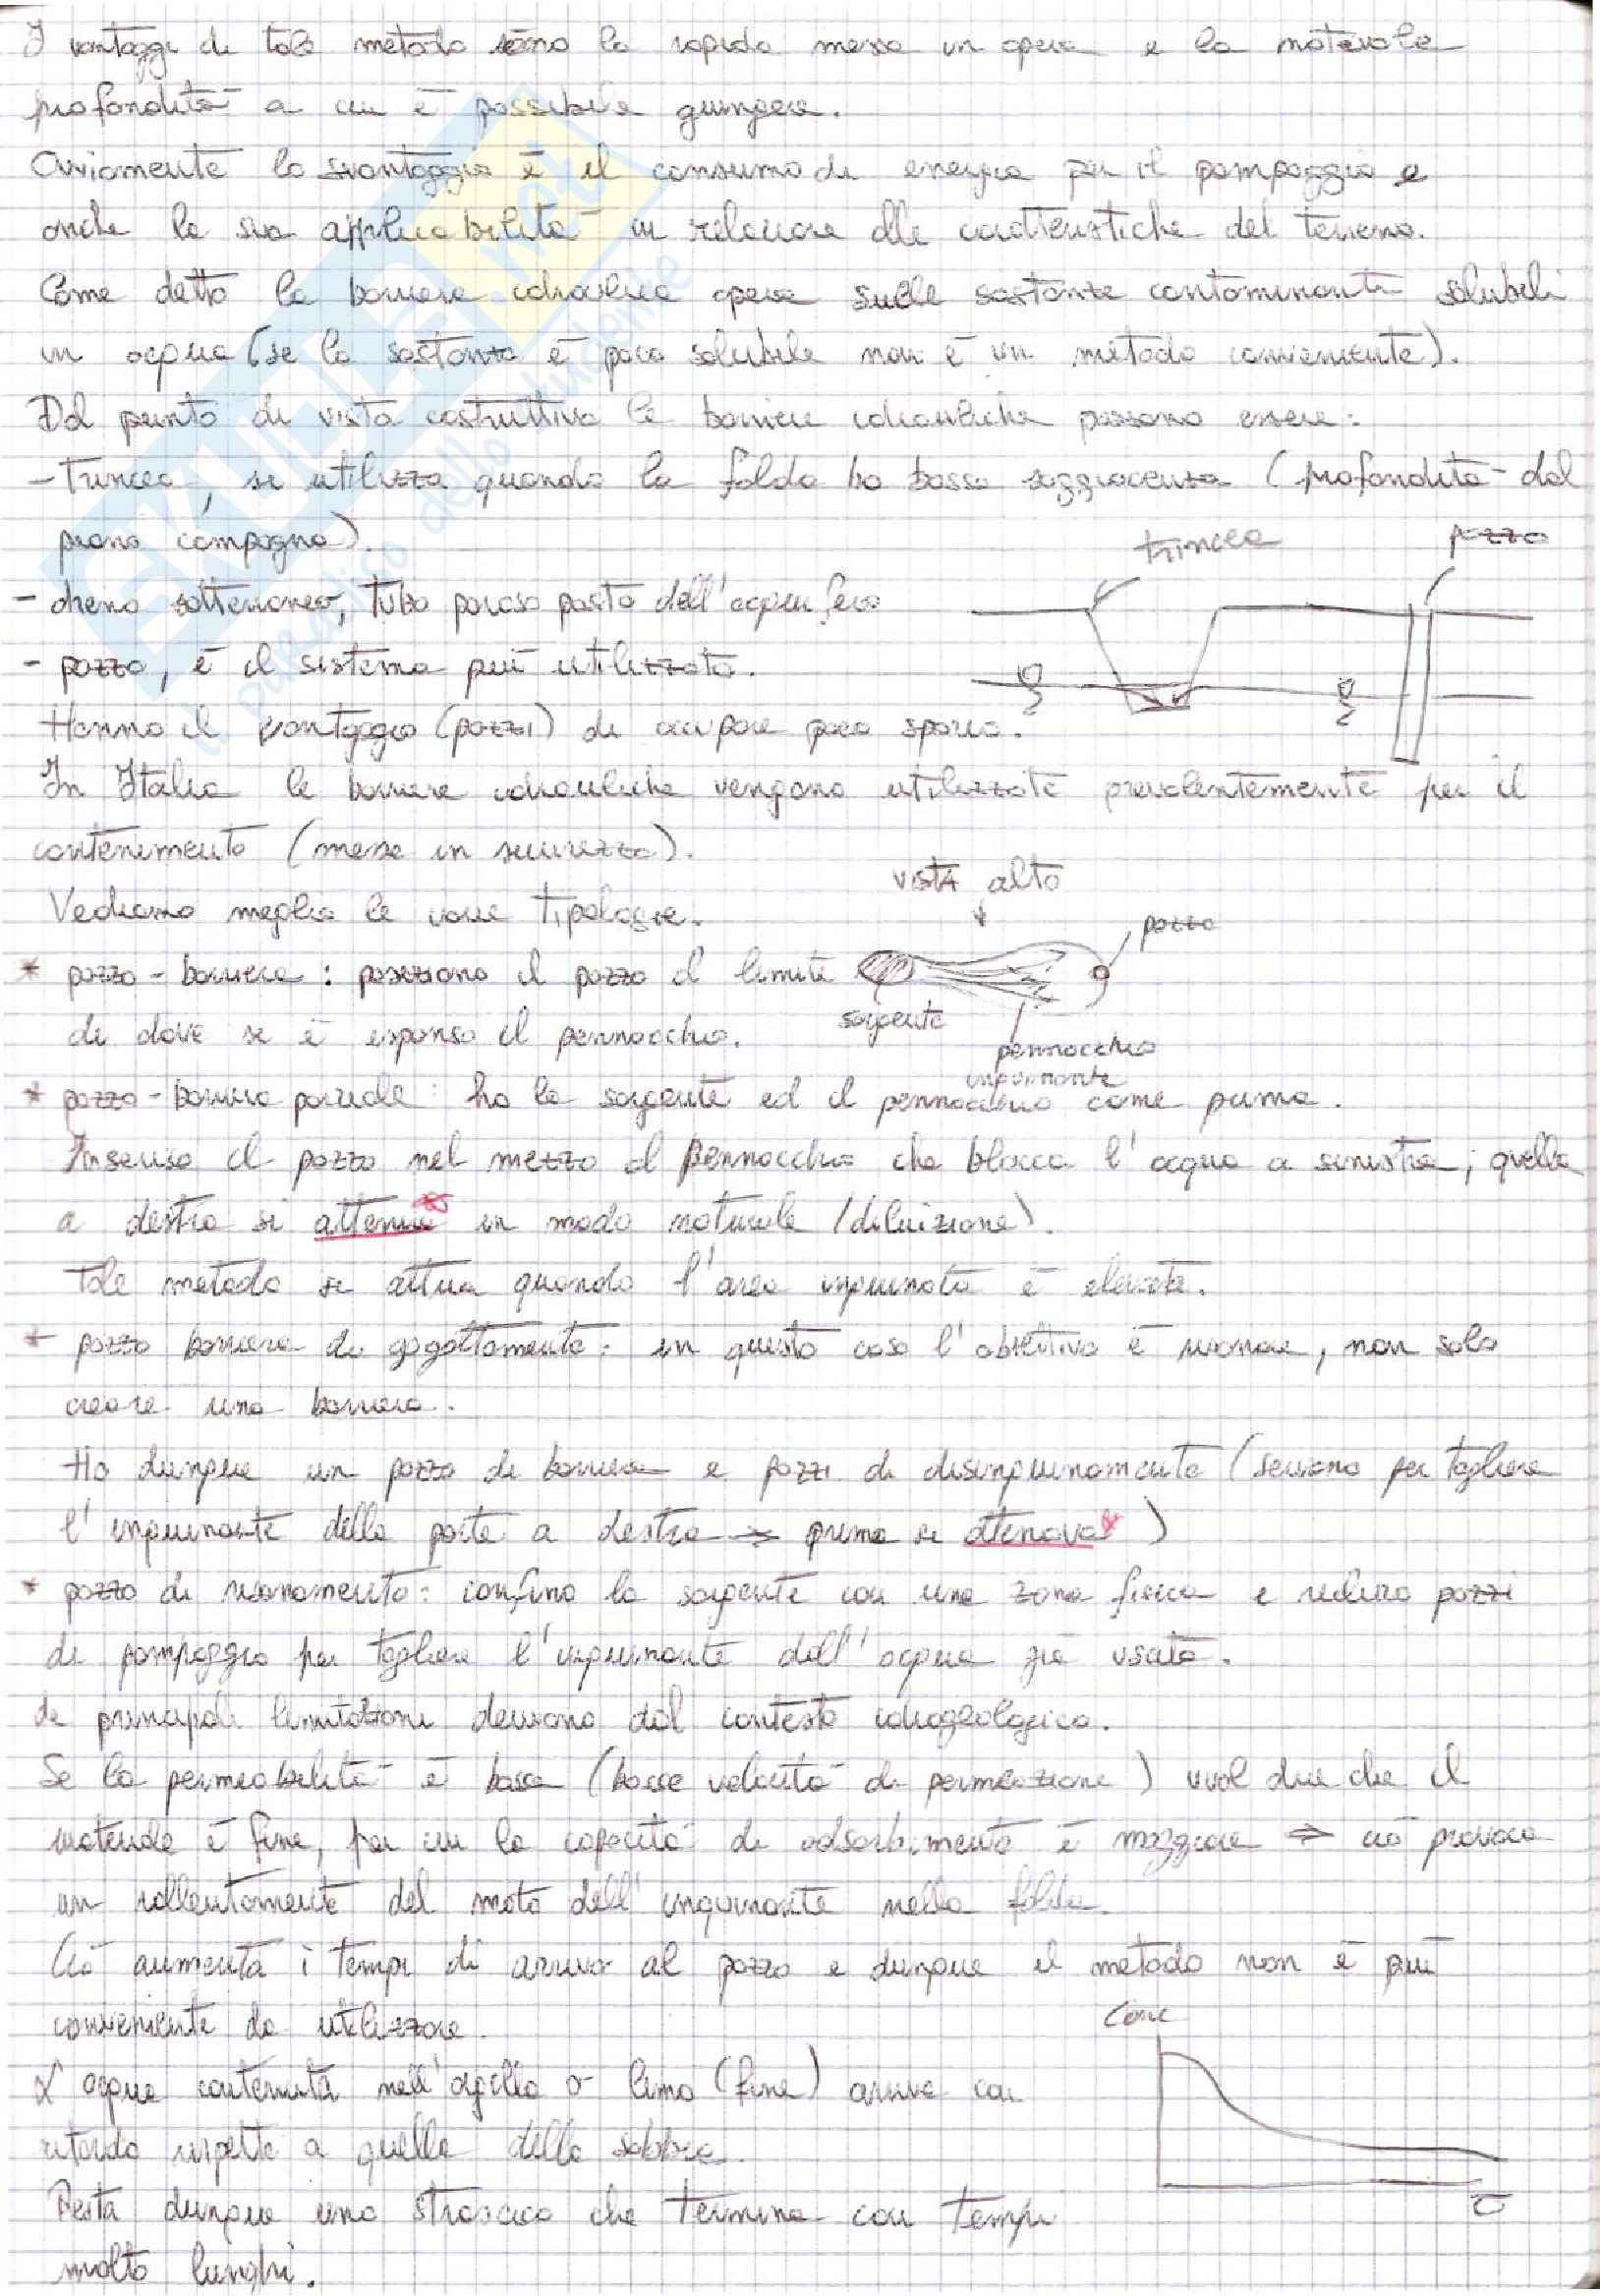 I vantaggi di tale metodo sono la rapida messa in opera e la notevole
profondità a cui è possibile giungere.
Ovviamente lo svantaggio è il consumo di energia per il pompaggio e
anche la sua applicabilità in relazione alle caratteristiche del terreno.
Come detto la barriera idraulica opera sulle sostanze contaminanti solubili
in acqua (se la sostanza è poco solubile non è un metodo conveniente).
Dal punto di vista costruttivo le barriere idrauliche possono essere:
- trincea, si utilizza quando la falda ha bassa soggiacenza (profondità dal
piano campagna).
trincea
pozzo
- dreno sotterraneo, tubo poroso posto dell'acquifero
- pozzo, è il sistema più utilizzato.
Hanno il vantaggio (pozzi) di occupare poco spazio.
In Italia le barriere idrauliche vengono utilizzate prevalentemente per il
contenimento (messa in sicurezza).
vista alto
Vediamo meglio le varie tipologie.
pozzo
* pozzo-barriera: posiziono il pozzo al limite
sorgente
di dove si è espanso il pennacchio.
pennacchio
inquinante
* pozzo-barriera parziale: ho la sorgente ed il pennacchio come prima.
Inserisco il pozzo nel mezzo al pennacchio che blocca l'acqua a sinistra; quella
a destra si attenua* in modo naturale (diluizione).
Tale metodo si attua quando l'area inquinata è elevata.
* pozzo barriera di aggottamento: in questo caso l'obiettivo è risanare, non solo
creare una barriera.
Ho dunque un pozzo di barriera e pozzi di disinquinamento (servono per togliere
l'inquinante della parte a destra → prima si attenuava* )
* pozzo di risanamento: confino la sorgente con una zona fisica e utilizzo pozzi
di pompaggio per togliere l'inquinante dall'acqua già uscita.
Le principali limitazioni derivano dal contesto idrogeologico.
Se la permeabilità è bassa (basse velocità di permeazione) vuol dire che il
materiale è fine, per cui la capacità di adsorbimento è maggiore ⇒ ciò provoca
un rallentamento del moto dell'inquinante nella falda.
Ciò aumenta i tempi di arrivo al pozzo e dunque il metodo non è più
conveniente da utilizzare.
Conc
L'acqua contenuta nell'argilla o limo (fine) arriva con
ritardo rispetto a quella della sabbia.
Resta dunque uno strascico che termina con tempi
molto lunghi.